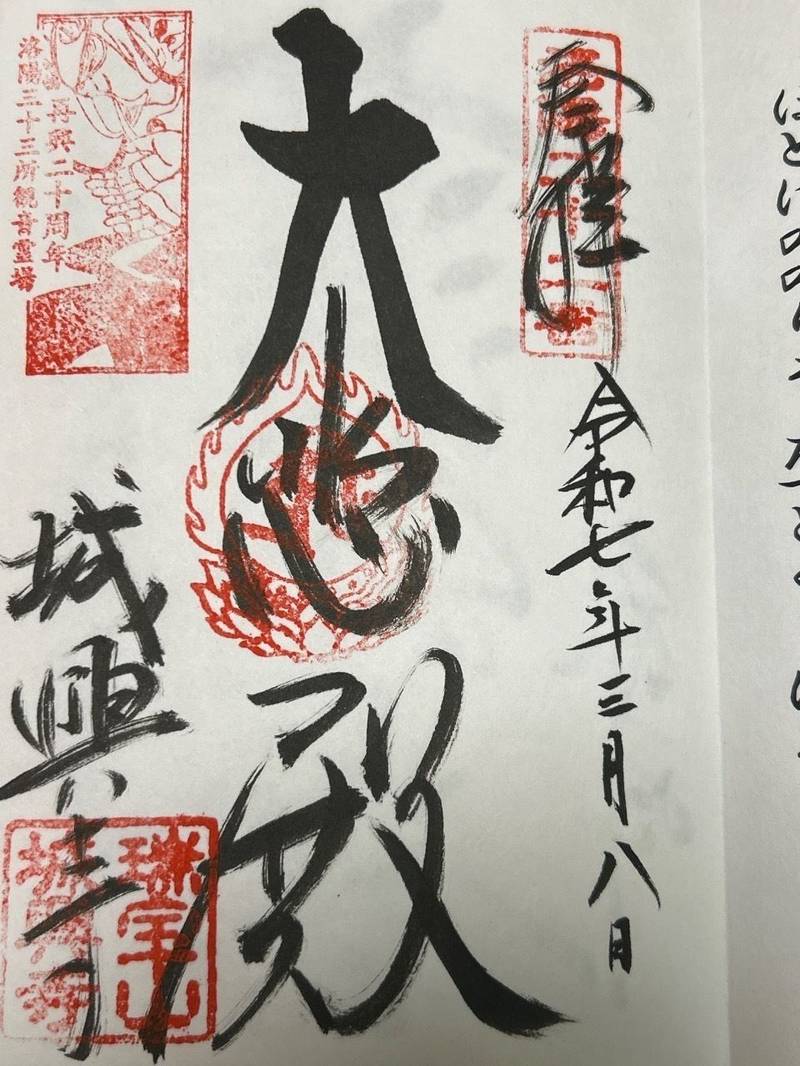 奉拝
令和七年三月八日
大悲殿
城興寺
再興二十周年
洛陽三十三所観音霊場
瑞宝山
城興寺
ほとけの